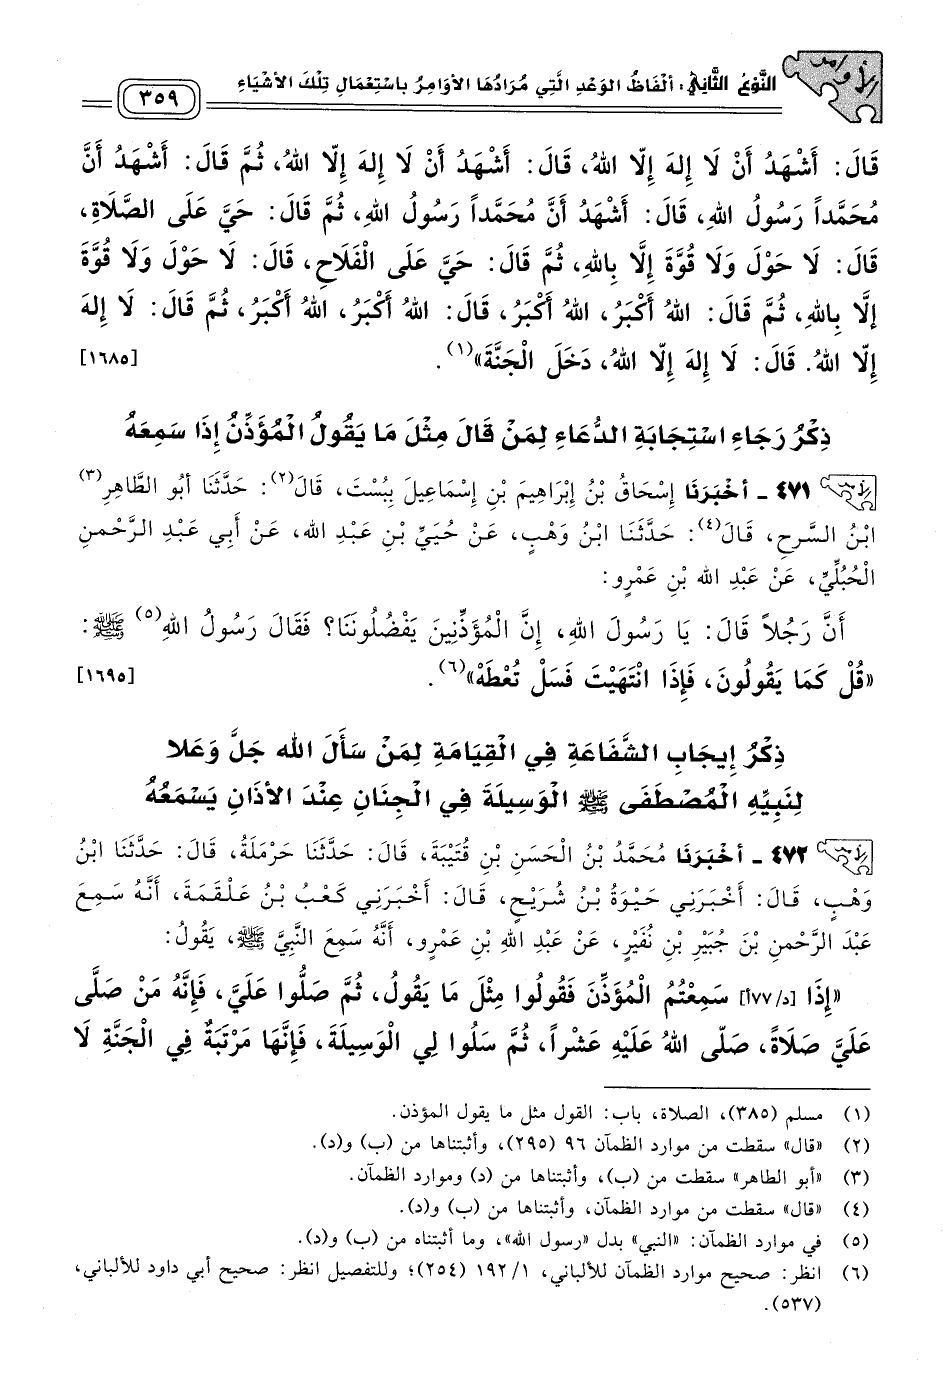 الأوامر
النَّوْعُ الثَّانِي: أَلْفَاظُ الوَعْدِ الَّتِي مُرَادُهَا الأَوَامِرُ بِاسْتِعْمَالِ تِلْكَ الأَشْيَاءِ
٣٥٩
قَالَ: أَشْهَدُ أَنْ لَا إِلهَ إِلّا اللهُ، قَالَ: أَشْهَدُ أَنْ لَا إِلهَ إِلّا اللهُ، ثُمَّ قَالَ: أَشْهَدُ أَنَّ
مُحَمَّداً رَسُولُ اللهِ، قَالَ: أَشْهَدُ أَنَّ مُحَمَّداً رَسُولُ اللهِ، ثُمَّ قَالَ: حَيَّ عَلَى الصَّلَاةِ،
قَالَ: لَا حَوْلَ وَلَا قُوَّةَ إِلَّا بِاللهِ، ثُمَّ قَالَ: حَيَّ عَلَى الْفَلَاحِ، قَالَ: لَا حَوْلَ وَلَا قُوَّةَ
إِلَّا بِاللهِ، ثُمَّ قَالَ: اللهُ أَكْبَرُ، اللهُ أَكْبَرُ، قَالَ: اللهُ أَكْبَرُ، اللهُ أَكْبَرُ، ثُمَّ قَالَ: لَا إِلهَ
إِلّا اللهُ. قَالَ: لَا إِلهَ إِلّا اللهُ، دَخَلَ الْجَنَّةَ»(١). [١٦٨٥]
ذِكْرُ رَجَاءِ اسْتِجَابَةِ الدُّعَاءِ لِمَنْ قَالَ مِثْلَ مَا يَقُولُ الْمُؤَذِّنُ إِذَا سَمِعَهُ
٤٧١ - أَخْبَرَنَا إِسْحَاقُ بْنُ إِبْرَاهِيمَ بْنِ إِسْمَاعِيلَ بِبُسْتَ، قَالَ(٢): حَدَّثَنَا أَبُو الطَّاهِرِ(٣)
ابْنُ السَّرحِ، قَالَ(٤): حَدَّثَنَا ابْنُ وَهْبٍ، عَنْ حُيَيِّ بْنِ عَبْدِ الله، عَنْ أَبِي عَبْدِ الرَّحْمنِ
الْحُبُلِّيِّ، عَنْ عَبْدِ الله بْنِ عَمْرٍو:
أَنَّ رَجُلاً قَالَ: يَا رَسُولَ اللهِ، إِنَّ الْمُؤَذِّنِينَ يَفْضُلُونَنَا؟ فَقَالَ رَسُولُ اللهِ(٥) ﷺ:
«قُلْ كَمَا يَقُولُونَ، فَإِذَا انْتَهَيْتَ فَسَلْ تُعْطَهْ»(٦). [١٦٩٥]
ذِكْرُ إِيجَابِ الشَّفَاعَةِ فِي الْقِيَامَةِ لِمَنْ سَأَلَ الله جَلَّ وَعَلا
لِنَبِيِّهِ الْمُصْطَفَى ﷺ الْوَسِيلَةَ فِي الْجِنَانِ عِنْدَ الأَذَانِ يَسْمَعُهُ
٤٧٢ - أَخْبَرَنَا مُحَمَّدُ بْنُ الْحَسَنِ بْنِ قُتَيْبَةَ، قَالَ: حَدَّثَنَا حَرْمَلَةُ، قَالَ: حَدَّثَنَا ابْنُ
وَهْبٍ، قَالَ: أَخْبَرَنِي حَيْوَةُ بْنُ شُرَيْحٍ، قَالَ: أَخْبَرَنِي كَعْبُ بْنُ عَلْقَمَةَ، أَنَّهُ سَمِعَ
عَبْدَ الرَّحْمنِ بْنَ جُبَيْرِ بْنِ نُفَيْرٍ، عَنْ عَبْدِ اللهِ بْنِ عَمْرٍو، أَنَّهُ سَمِعَ النَّبِيَّ ﷺ، يَقُولُ:
«إِذَا [د/١٧٧] سَمِعْتُمُ الْمُؤَذِّنَ فَقُولُوا مِثْلَ مَا يَقُولُ، ثُمَّ صَلُّوا عَلَيَّ، فَإِنَّهُ مَنْ صَلَّى
عَلَيَّ صَلَاةً، صَلَّى اللهُ عَلَيْهِ عَشْراً، ثُمَّ سَلُوا لِي الْوَسِيلَةَ، فَإِنَّهَا مَرْتَبَةٌ فِي الْجَنَّةِ لَا
(١) مسلم (٣٨٥)، الصلاة، باب: القول مثل ما يقول المؤذن.
(٢) «قال» سقطت من موارد الظمآن ٩٦ (٢٩٥)، وأثبتناها من (ب) و(د).
(٣) «أبو الطاهر» سقطت من (ب)، وأثبتناها من (د) وموارد الظمآن.
(٤) «قال» سقطت من موارد الظمآن، وأثبتناها من (ب) و(د).
(٥) في موارد الظمآن: «النبي» بدل «رسول الله»، وما أثبتناه من (ب) و(د).
(٦) انظر: صحيح موارد الظمآن للألباني، ١/١٩٢ (٢٥٤)؛ وللتفصيل انظر: صحيح أبي داود للألباني،
(٥٣٧).